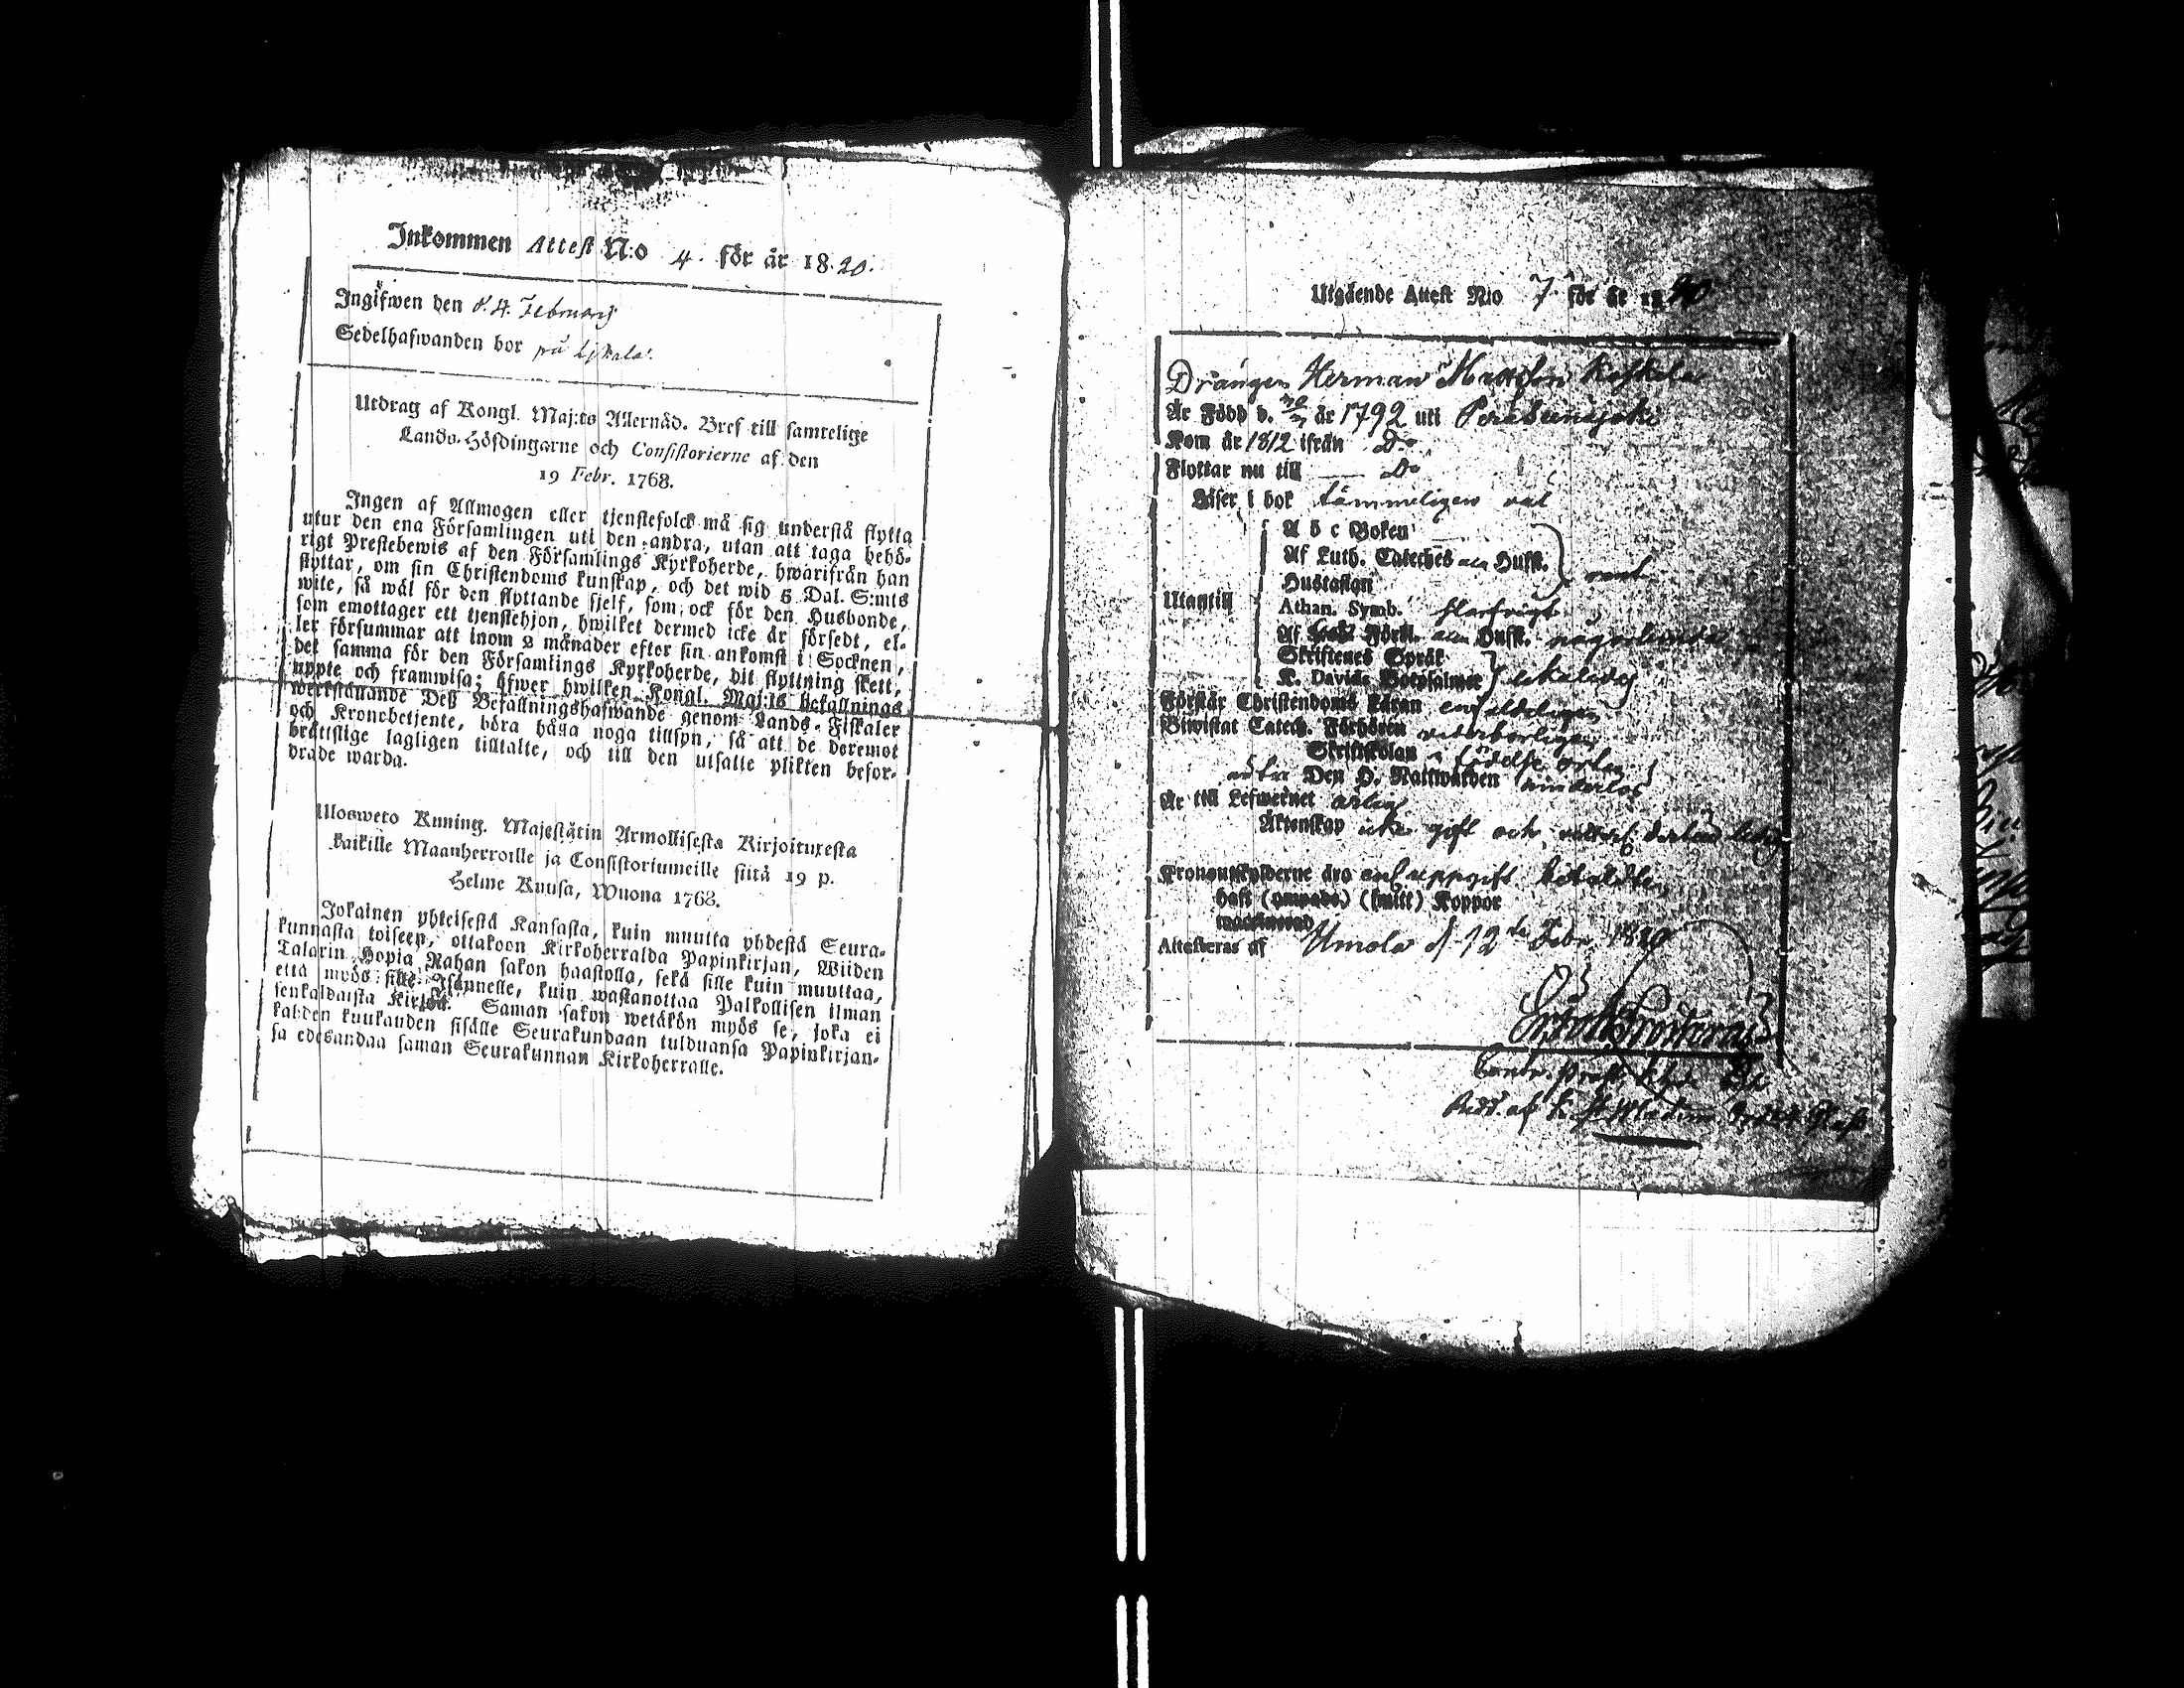 Inkommen Attest N:o 4. för år 1820.
Ingifwen den d. 4. Februarij
Sedelhafwanden bor på
Utdrag af Kongl. Maj:ts Allernåd. Bref till samtelige
Lands-Höfdingarne och Consistorierne af den
19 Febr. 1768.
Ingen af Allmogen eller tjenstefolck må sig understå flytta
utur den ena Församlingen uti den andra, utan att taga behö-
rigt Prestebewis af den Församlings Kyrkoherde, hwarifrån han
flyttar, om sin Christendoms kunskap, och det wid 5 Dal. S:mts
wite, så wäl för den flyttande sjelf, som ock för den Husbonde,
som emottager ett tjenstehjon, hwilket dermed icke är försedt, el-
ler försummar att inom 2 månader efter sin ankomst i Socknen,
det samma för den Församlings Kyrkoherde, dit flyttning skett,
uppte och framwisa; öfwer hwilken Kongl. Maj:ts befallnings
werkställande Deß Befallningshafwande genom Lands-Fiskaler
och Kronobetjente, böra hålla noga tillsyn, så att de deremot
bråttslige lagligen tilltalte, och till den utsatte plikten befor-
drade warda.
Ulosweto Kuning. Majestätin Armollisesta Kirjoituxesta
kaikille Maanherroille ja Consistoriumeille siitä 19 p.
Helme Kuusa, Wuona 1768.
Jokainen yhteisestä Kansasta, kuin muutta yhdestä Seura-
kunnasta toiseen, ottakoon Kirkoherralda Papinkirjan, Wiiden
Talarin Hopia Rahan sakon haastolla, sekä sille kuin muuttaa,
että myös sille Isännelle, kuin wastanottaa Palkollisen ilman
senkaldaista Kirjaa. Saman sakon wetäkön myös se, joka ei
kahden kuukauden sisälle Seurakundaan tulduansa Papinkirjan-
sa edesandaa saman Seurakunnan Kirkoherralle.
Utgående Attest N:o 7. för år 1820
Drängen Herman Mattson Koskela
Är Född d. år 1792 uti Peräseinäjoki
Kom år 1812 ifrån Do
Flyttar nu till — Do
Läser i bok tämmeligen väl
A b c Boken
Af Luth. Cateches Husk.
Hustaflan
Utantill
Athan. Symb.
Af Förkl. Husk. någorlunda
Skriftenes Språk
K. Davids Botpsalmer
Förstår Christendoms läran enfaldeligen
Biwistat Catech. Förhören vederbörligen
Skriftskolan i födelse orten
Den H. Nattwarden hinderlös
Är till Lefwernet ärlig
Äktenskap icke gift och
Kronoutskylderne äro enl uppgift betaldte
haft (ympade) (smitt) Koppor
Attesteras af Ilmola d. 12te Febr. 1820